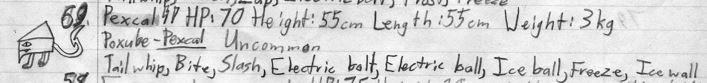 69. Pexcal HP: 70 Height: 55cm Length: 55cm Weight: 3kg
Poxube - Pexcal Uncommon
Tail whip, Bite, Slash, Electric bolt, Electric ball, Ice ball, Freeze, Ice wall